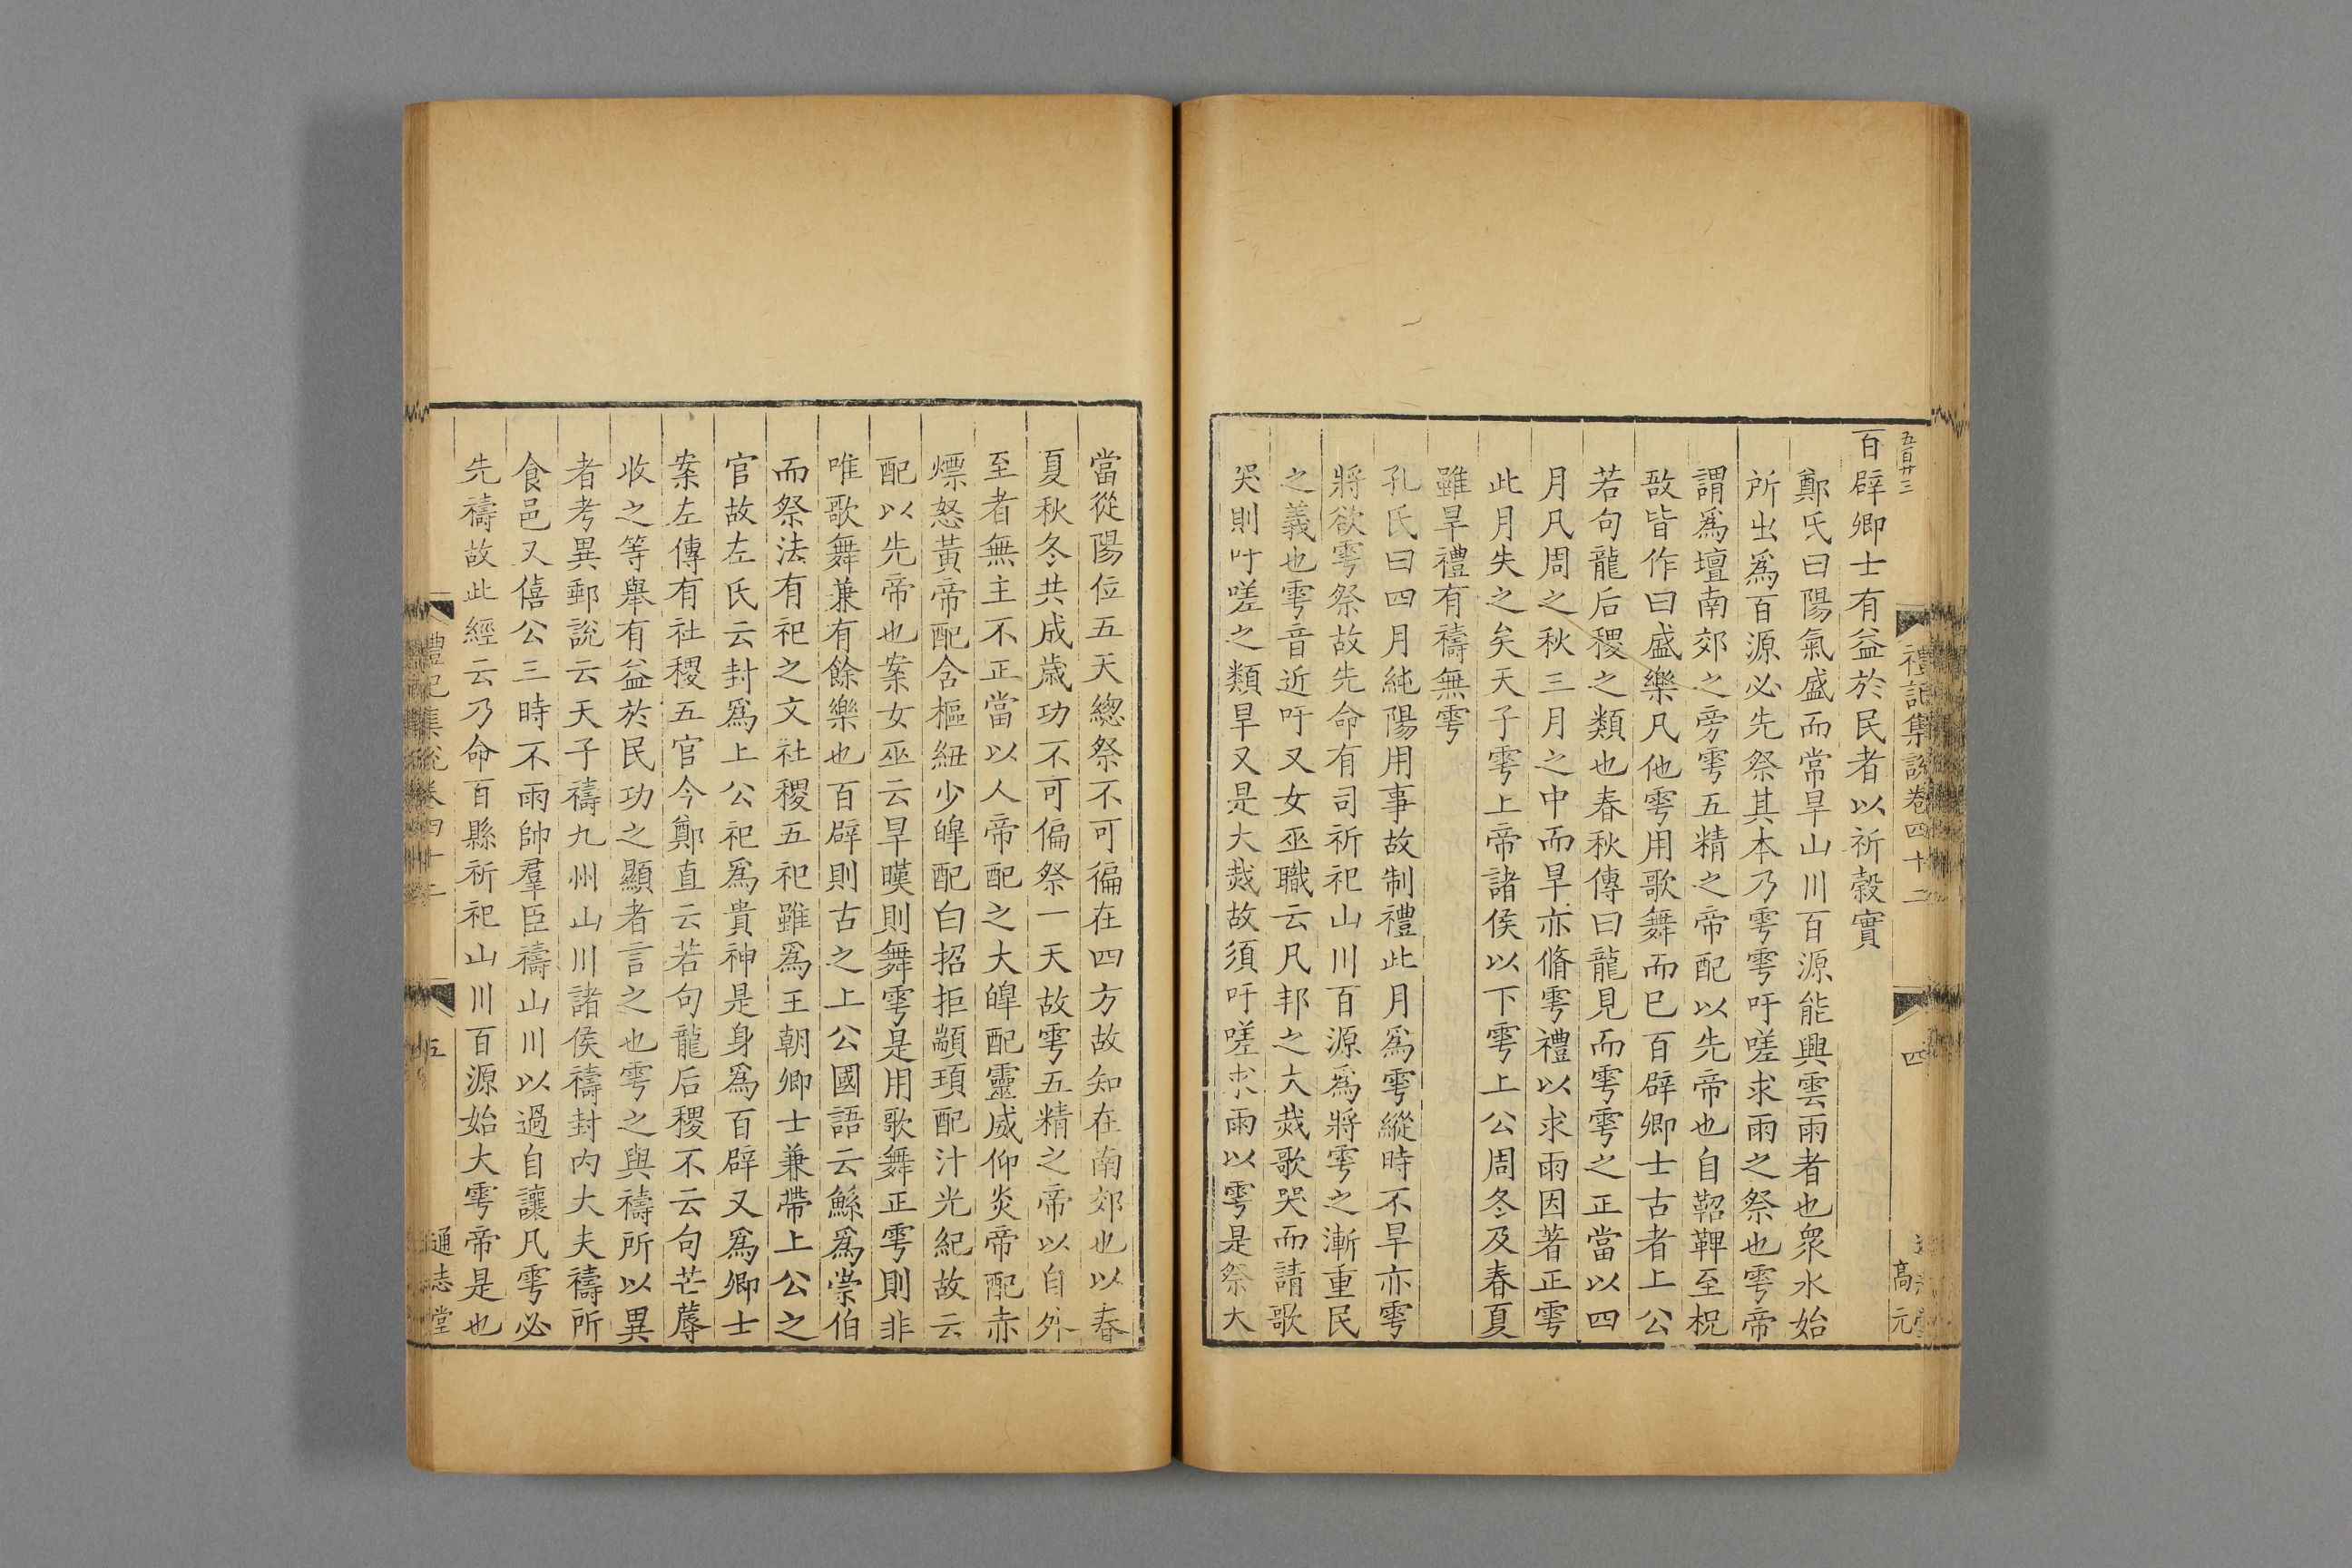 五百廿三
禮記集說卷四十二
四
高元
百辟卿士有益於民者以祈穀實
鄭氏曰陽氣盛而常旱山川百源能興雲雨者也衆水始
所出爲百源必先祭其本乃雩雩吁嗟求雨之祭也雩帝
謂爲壇南郊之旁雩五精之帝配以先帝也自鞀鞞至柷
敔皆作曰盛樂凡他雩用歌舞而已百辟卿士古者上公
若句龍后稷之類也春秋傳曰龍見而雩雩之正當以四
月凡周之秋三月之中而旱亦脩雩禮以求雨因著正雩
此月失之矣天子雩上帝諸侯以下雩上公周冬及春夏
雖旱禮有禱無雩
孔氏曰四月純陽用事故制禮此月爲雩縱時不旱亦雩
將欲雩祭故先命有司祈祀山川百源爲將雩之漸重民
之義也雩音近吁又女巫職云凡邦之大烖歌哭而請歌
哭則吁嗟之類旱又是大烖故須吁嗟求雨以雩是祭大
當從陽位五天總祭不可徧在四方故知在南郊也以春
夏秋冬共成歲功不可偏祭一天故雩五精之帝以自外
至者無主不正當以人帝配之大皥配靈威仰炎帝配赤
熛怒黃帝配含樞紐少皥配白招拒顓頊配汁光紀故云
配以先帝也案女巫云旱暵則舞雩是用歌舞正雩則非
唯歌舞兼有餘樂也百辟則古之上公國語云鯀爲崇伯
而祭法有祀之文社稷五祀雖爲王朝卿士兼帶上公之
官故左氏云封爲上公祀爲貴神是身爲百辟又爲卿士
案左傳有社稷五官今鄭直云若句龍后稷不云句芒蓐
收之等舉有益於民功之顯者言之也雩之與禱所以異
者考異郵說云天子禱九州山川諸侯禱封内大夫禱所
食邑又僖公三時不雨帥羣臣禱山川以過自讓凡雩必
先禱故此經云乃命百縣祈祀山川百源始大雩帝是也
禮記集說卷四十二
五
通志堂